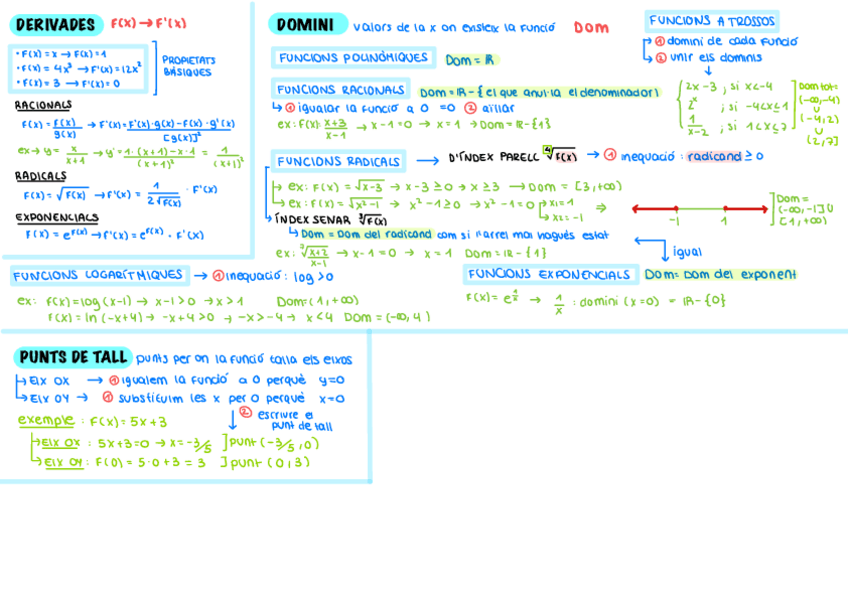 DERIVADES F(X) → F'(X)
• F(X) = X → F(X) = 1
• F(X) = 4X³ → F'(X) = 12X²
• F(X) = 3 → F'(X) = 0
PROPIETATS
BÀSIQUES
RACIONALS
F(X) = F(X)/g(X) → F'(X) = F'(X)·g(X) - F(X)·g'(X)/[g(X)]²
ex → y = x/x+1 → y' = 1·(x+1) - x·1/(x+1)² = 1/(x+1)²
RADICALS
F(X) = √F(X) → F'(X) = 1/2√F(X) · F'(X)
EXPONENCIALS
F(X) = e^F(X) → F'(X) = e^F(X) · F'(X)
DOMINI valors de la x on existeix la funció Dom
FUNCIONS POLINÒMIQUES Dom = ℝ
FUNCIONS RACIONALS Dom = ℝ - { el que anul·la el denominador }
↳ ① igualar la funció a 0 =0 ② aïllar
ex: F(X): x+3/x-1 → x-1=0 → x=1 → Dom = ℝ - {1}
FUNCIONS RADICALS → D'ÍNDEX PARELL ⁴√F(X) → ① inequació: radicand ≥ 0
ex: F(X) = √x-3 → x-3 ≥ 0 → x ≥ 3 → Dom = [3, +∞)
ex: F(X) = √x²-1 → x²-1 ≥ 0 → x²-1 = 0 x₁ = 1
x₂ = -1
⇒ -1 1
Dom =
(-∞, -1] U
[1, +∞)
ÍNDEX SENAR ³√F(X)
↳ Dom = Dom del radicand com si l'arrel mai hagués estat
ex: ³√x+2/x-1 → x-1=0 → x=1 Dom = ℝ - {1}
igual
FUNCIONS A TROSSOS
① domini de cada funció
② unir els dominis
2x-3 ; si x<-4
2ˣ ; si -4<x≤1
1/x-2 ; si 1<x≤7
Dom tot=
(-∞, -4)
U
(-4, 2)
U
(2, 7]
FUNCIONS LOGARÍTMIQUES → ① inequació: log > 0
ex: F(X) = log(x-1) → x-1 > 0 → x > 1 Dom = (1, +∞)
F(X) = ln(-x+4) → -x+4 > 0 → -x > -4 → x < 4 Dom = (-∞, 4)
FUNCIONS EXPONENCIALS Dom = Dom del exponent
F(X) = e^1/x → 1/x : domini (x=0) = ℝ - {0}
PUNTS DE TALL punts per on la funció talla els eixos
EIX OX → ① igualem la funció a 0 perquè y=0
EIX OY → ① substituïm les x per 0 perquè x=0
② escriure el
punt de tall
exemple: F(X) = 5x+3
EIX OX: 5x+3=0 → x=-3/5 ] punt (-3/5, 0)
EIX OY: F(0) = 5·0+3 = 3 ] punt (0, 3)